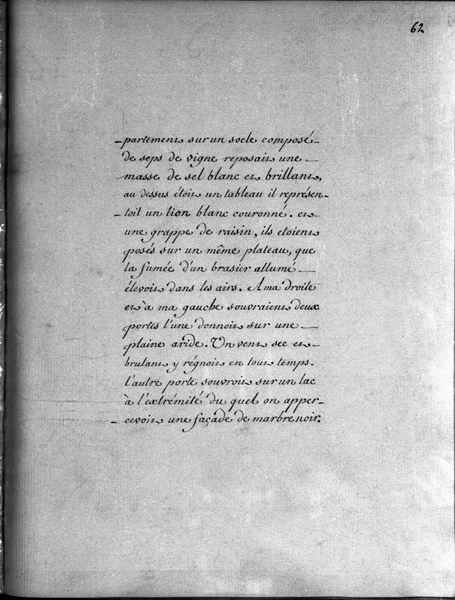 62
-partement sur un socle composé-
de seps de vigne reposait une-
masse de sel blanc et brillant,
au dessus étoit un tableau il représen-
-toit un lion blanc couronné. et
une grappe de raisin, ils etoient
posés sur un même plateau, que
la fumée d'un brasier allumé-
élevoit dans les airs. A ma droite
et à ma gauche s'ouvraient deux
portes l'une donnoit sur une-
plaine aride. Un vent sec et-
brulant y régnoit en tout temps.
l'autre porte s'ouvroit sur un lac
à l'extrémité du quel on apper-
-cevoit une façade de marbre noir.